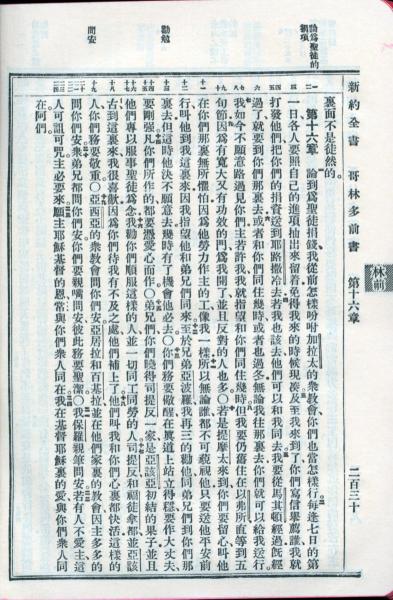 新約全書　哥林多前書　第十六章　二百三十
林前
論爲聖徒的捐項
勸勉
問安
裏面不是徒然的。
第十六章　論到爲聖徒捐錢我從前怎樣吩咐加拉太的衆敎會你們也當怎樣行每逢七日的第
一日各人要照自己的進項抽出來留着免得我來的時候現湊及至我來到了你們寫信舉薦誰我就
打發他們把你們的捐貲送到耶路撒冷去若我也該去他們可以和我同去我要從馬其頓經過旣經
過了就要到你們那裏去或者和你們同住幾時或者也過冬無論我往那裏去你們就可以給我送行
我如今不願意路過見你們主若許我我就指望和你們同住幾時但我要仍舊住在以弗所直等到五
旬節因爲有寬大又有功效的門爲我開了並且反對的人也多〇若是提摩太來到你們要留心叫他
在你們那裏無所懼怕因爲他勞力作主的工像我一樣所以無論誰都不可藐視他只要送他平安前
行叫他到我這裏來因我指望他和弟兄們同來至於兄弟亞波羅我再三的勸他同弟兄們到你們那
裏去但這時他決不願意去幾時有了機會他必去〇你們務要儆醒在眞道上站立得穩要作大丈夫
要剛强凡你們所作的都要憑愛心而作〇弟兄們你們曉得司提反一家是亞該亞初結的果子並且
他們專以服事聖徒爲念我勸你們順服這樣的人並一切同工同勞的人司提反和福徒拿都並亞該
古到這裏來我很喜歡因爲你們待我有不及之處他們補上了他們叫我和你們心裏都快活這樣的
人你們務要敬重〇亞西亞的衆敎會問你們安亞居拉和百基拉並在他們家裏的敎會因主多多的
問你們安衆弟兄都問你們安你們要親嘴問安彼此務要聖潔〇我保羅親筆問安若有人不愛主這
人可詛可咒主必要來願主耶穌基督的恩常與你們衆人同在我在基督耶穌裏的愛與你們衆人同
在阿們